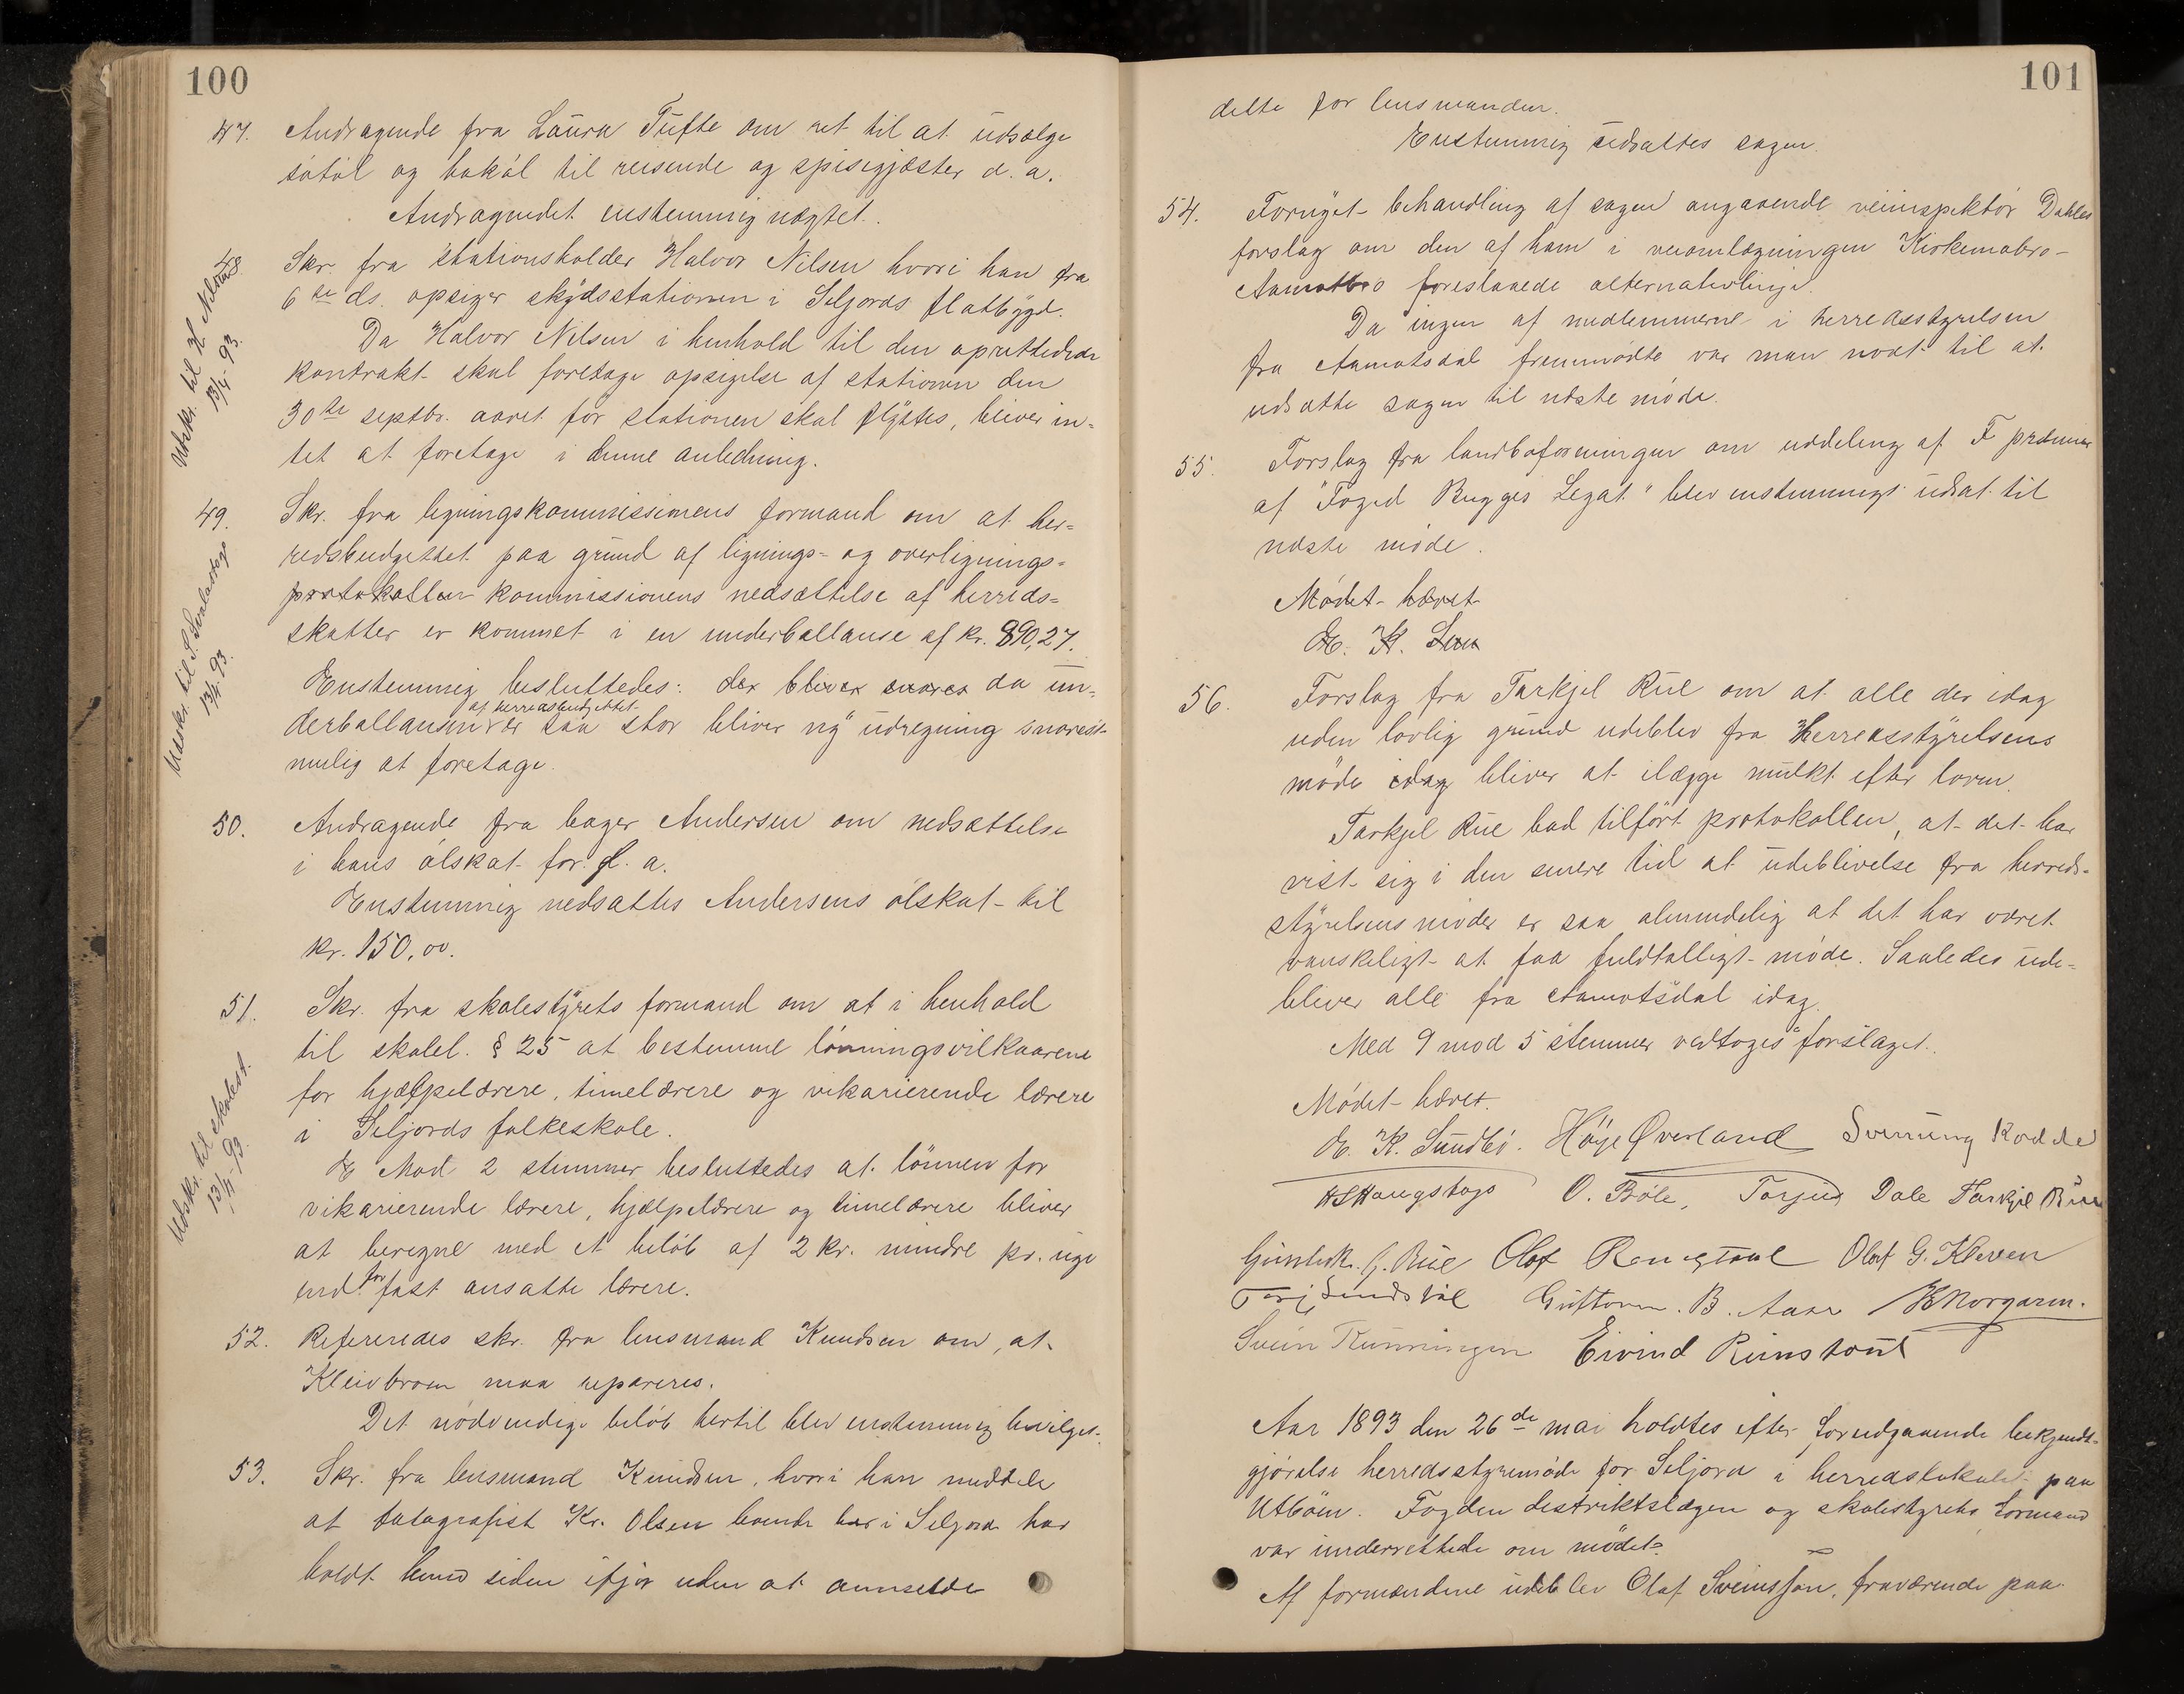 100
47. Andragende fra Laura Tufte om ret til at udsælge
søtøl og bakøl til reisende og spisegjæster d. a.
Andragendet enstemmig nægtet.
48. Skr. fra stationsholder Halvor Nilsen hvori han fra
6te ds. opsiger skydsstationen i Seljords flatbygd.
Da Halvor Nilsen i henhold til den oprettede
kontrakt skal foretage opsigelse af stationen den
30te septbr. aaret før stationen skal flyttes, bliver in-
tet at foretage i denne anledning.
Udskr. til H Nilsen
13/4-93.
49. Skr. fra ligningskommissionens formand om at her-
redsbudgettet paa grund af lignings- og overlignings-
protokollen kommissionens nedsættelse af herreds-
skatter er kommet i en underballanse af kr. 890,27.
Enstemmig besluttedes: der bliver da un-
af herredsbudgettet
derballansen er saa stor bliver ny udregning snarest
mulig at foretage.
Udskr. til S.
13/4 93.
50. Andragende fra bager Andersen om nedsættelse
i hans ølskat for d. a.
Enstemmig nedsattes Andersens ølskat til
kr. 150,00.
51. Skr. fra skolestyrets formand om at i henhold
til skolel. § 25 at bestemme lønningsvilkaarene
for hjælpelærere, timelærere og vikarierende lærere
i Seljords folkeskole.
E Mod 2 stemmer besluttedes at lønnen for
vikarierende lærere, hjælpelærere og timelærere bliver
at beregne med et beløb af 2 kr. mindre pr. uge
end for fast ansatte lærere.
Udskr. til skolest.
13/4-93
52. Refereredes skr. fra lensmand Knudsen om, at
Kleivbroen maa repareres.
Det nødvendige beløb hertil blev enstemmig bevilget.
53. Skr. fra lensmand Knudsen, hvori han meddele
at fotografist Kr. Olsen boende her i Seljord har
holdt hund siden ifjor uden at anmelde
101
dette for lensmanden.
Enstemmig udsattes sagen.
54. Fornyet behandling af sagen angaaende veiinspektør Dahles
forslag om den af ham i veiomlægningen Kirkemobro-
Aamotbro foreslaaede alternativlinje.
Da ingen af medlemmerne i herredsstyrelsen
fra Aamotsdal fremmødte var man nødt til at
udsætte sagen til næste møde.
55. Forslag fra landboforeningen om uddeling af F præmier
af "Foged Bugges Legat" blev enstemmigt udsat til
næste møde.
Mødet hævet
E. K. Sun
56. Forslag fra Tarkjel Rue om at alle der idag
uden lovlig grund udeblev fra Herredsstyrelsens
møde idag bliver at ilægge mulkt efter loven.
Tarkjel Rue bad tilført protokollen, at det har
vist sig i den senere tid at udeblivelse fra herreds-
styrelsens møder er saa almindelig at det har været
vanskeligt at faa fuldtalligt møde. Saaledes ude-
bliver alle fra Aamotsdal idag.
Med 9 mod 5 stemmer vedtoges forslaget.
Mødet hævet.
E. K. Sundbø. Høye Øverland Svenung Kodde
O. Bøle, Torjus Dale Tarkjel Rue
G. Rue Olof Olaf G. Kleven
B. Aase
Svein Eivind
Aar 1893 den 26de mai holdtes efter forudgaaende bekjendt-
gjørelse herredsstyremøde for Seljord i herredslokalet paa
Utbøen. Fogden distriktslægen og skolestyrets formand
var underrettede om mødet.
Af formændene udeblev Olaf Sveinsson, fraværende paa